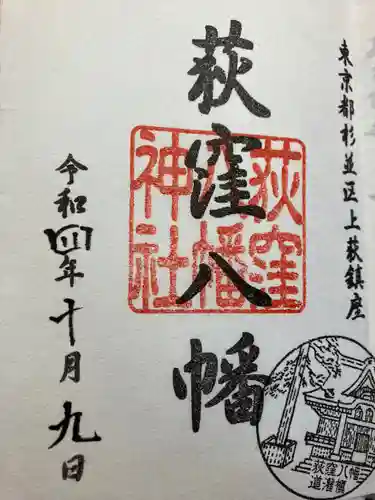 東京都杉並区上荻鎮座
荻窪八幡
荻窪八幡神社
令和四年十月九日
荻窪八幡